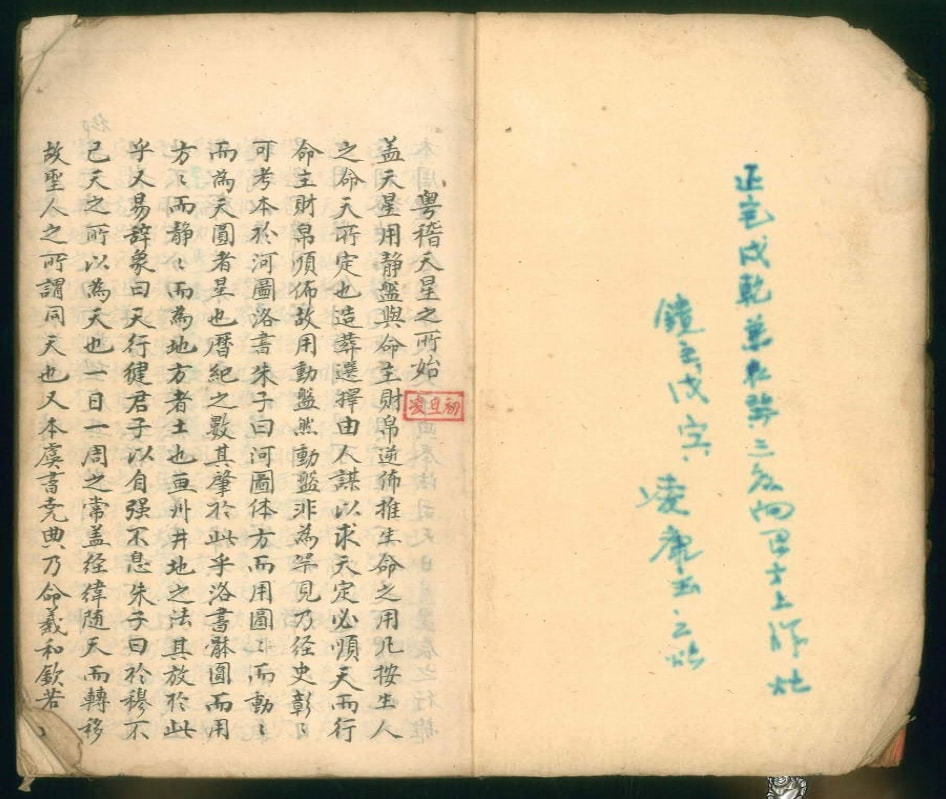 正宅戌乾兼
三 向 士上作灶
戌
凌 玉之
粵稽天星之所始
凌旦初
盖天星用静盤與命主財帛逆佈推生命之用凡按生人
之命天所定也造葬選擇由人謀以求天定必順天而行
命主財帛順佈故用動盤然動盤非為罕見乃经史彰〻
可考本於河圖洛書朱子曰河圖体方而用圓〻而動〻
而為天圓者星也暦紀之數其肇於此乎洛書辭圓而用
方〻而静〻而為地方者土也画州井地之法其放於此
乎又易辞象曰天行健君子以自强不息朱子曰於穆不
已天之所以為天也一日一周之常盖经緯随天而轉移
故聖人之所謂同天也又本虞書尭典乃命羲和欽若